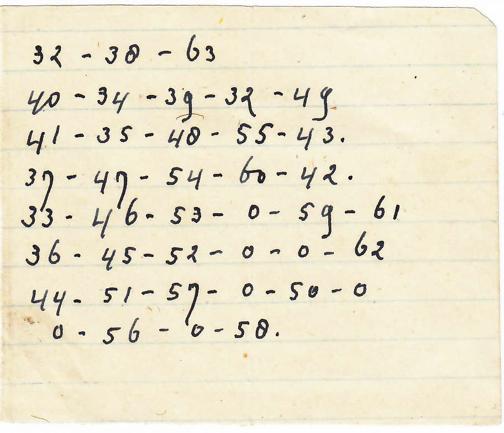 32 - 38 - 63
40 - 34 - 39 - 32 - 49
41 - 35 - 48 - 55 - 43.
37 - 47 - 54 - 60 - 42.
33 - 46 - 53 - 0 - 59 - 61
36 - 45 - 52 - 0 - 0 - 62
44 - 51 - 57 - 0 - 50 - 0
0 - 56 - 0 - 58.